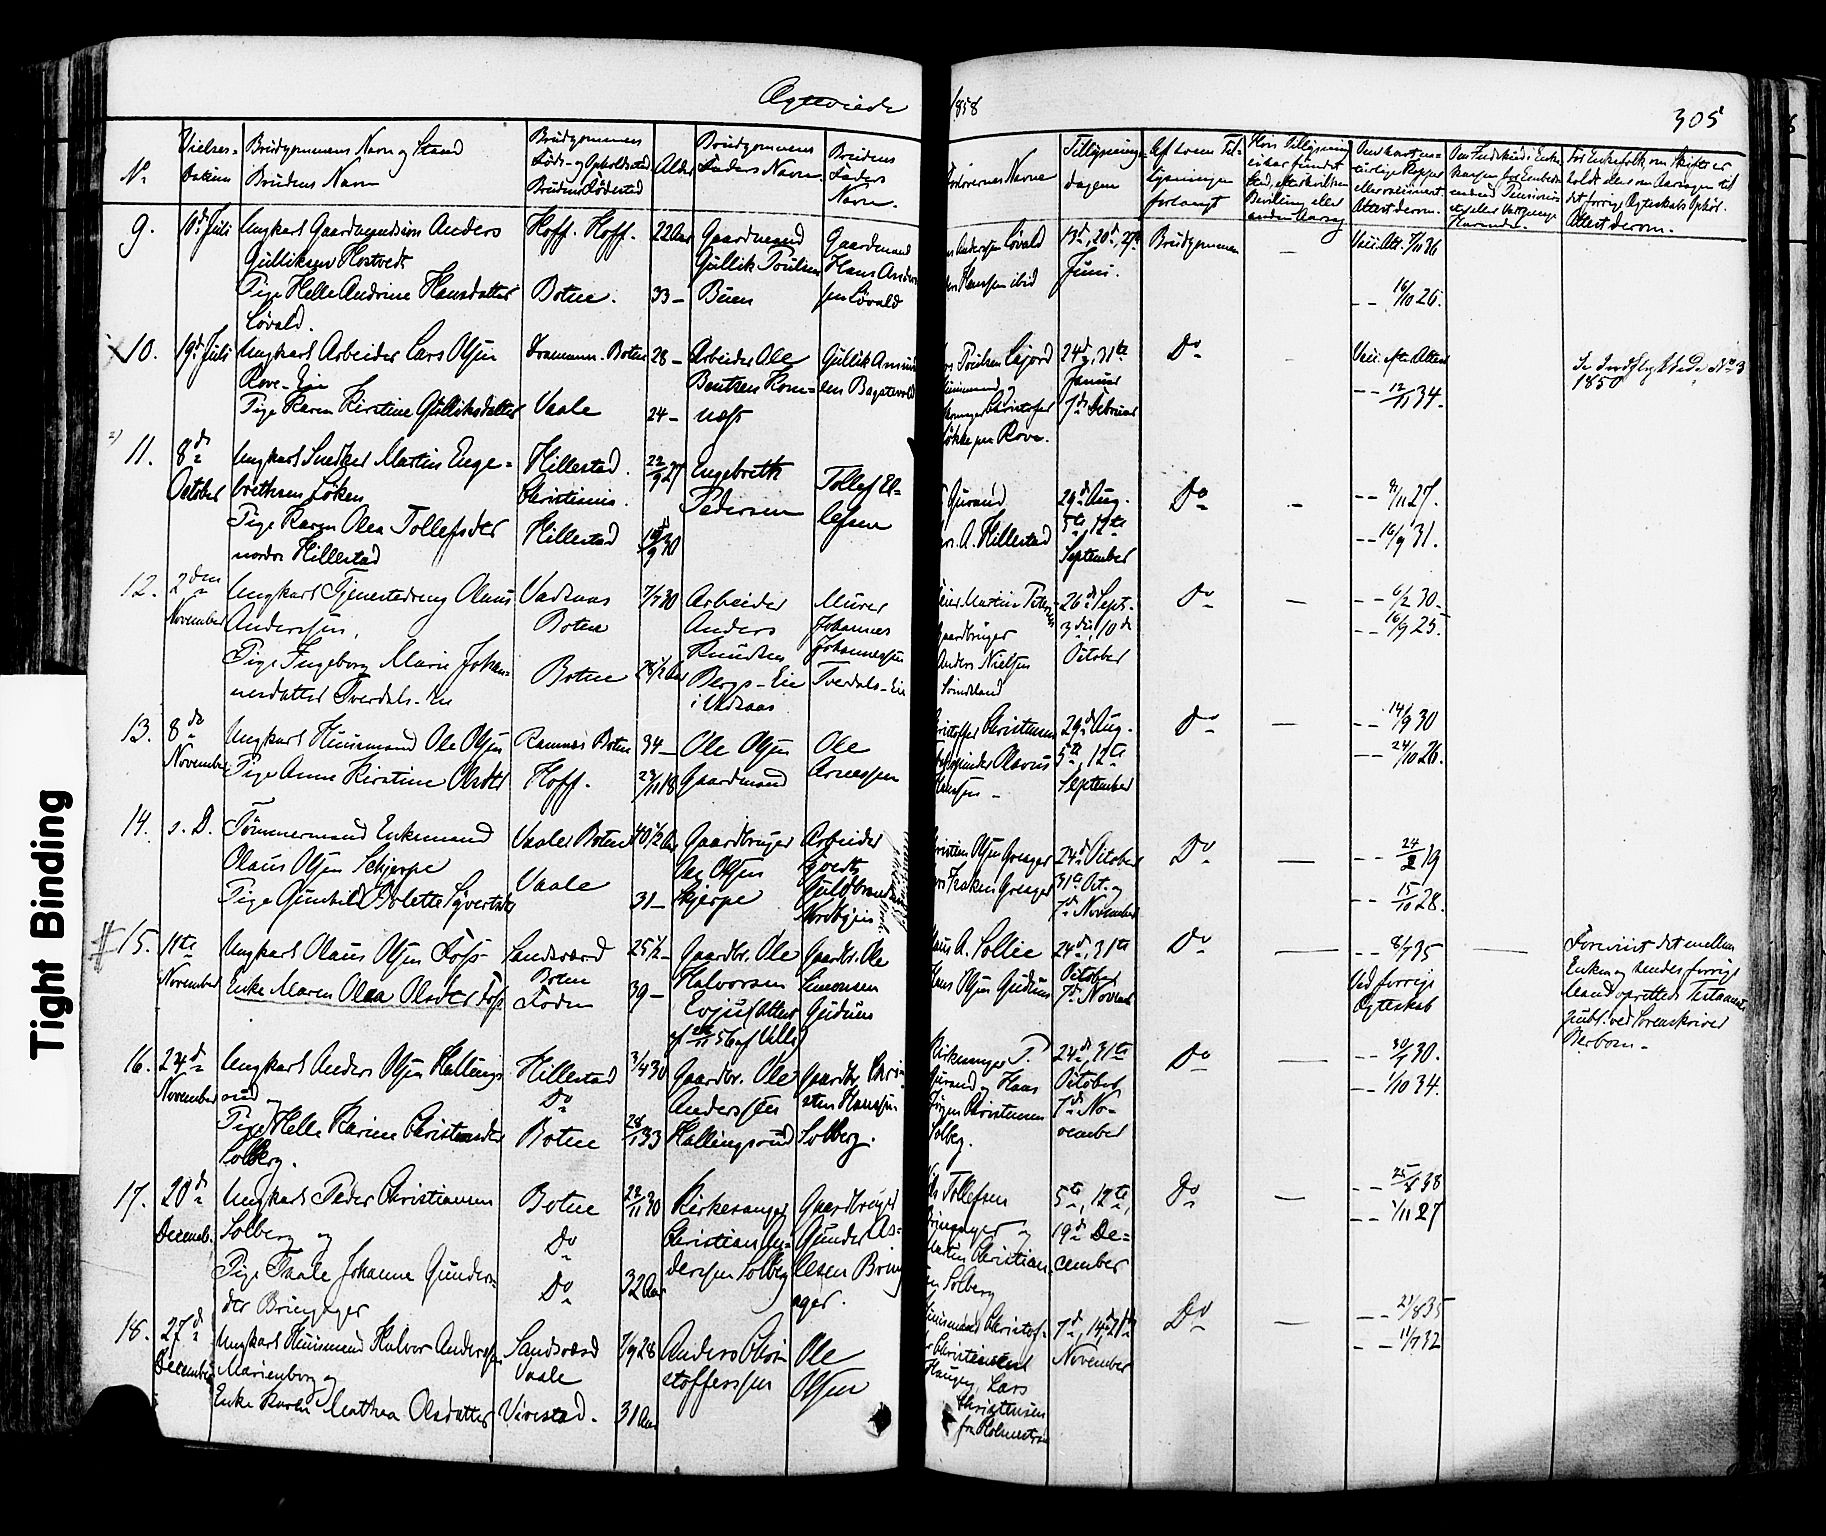 Ægteviede
1858
305
No
Vielses-
Datum
Brudgommens Navn og Stand
Brudens Navn
Brudgommens
Føde- og Opholdssted
Brudens Fødested
Alder
Brudgommens
Faders Navn
Brudens
Faders
Navn.
Forlovernes Navne
Tillysnings-
dagen
Af hvem Til-
lysningen
forlangt
9.
10de Juli
Ungkarl Gaardmandssøn Anders
Gulliksen Hostvedt
Pige Helle Andrine Hansdatter
Løvald.
Hoff. Hoff.
Botne.
22 Aar
33 –
Gaardmand
Gullik Poulsen
Buen
Gaardmand
Hans Ander-
sen Løvald
Andersen Løvald
Hansen ibid
13de, 20de, 27de
Juni.
Brudgommen
–
Vacc. Att.
– – 16/10 26.
10.
19de Juli
Ungkarl Arbeider Lars Olsen
Rove-Eie
Pige Karen Kirstine Gulliksdatter
Botne
Vaale
28 –
24 –
Arbeider Ole
Bentsen Kom-
næs
Gullik Amund
sen
Poulsen
Christofer
Rove.
24de, 31te
Januar
7de Februar
Do
– – 12/11 34.
1850
11.
8de
October
Ungkarl Snedker Martin Enge-
brethsen Løken
Pige Karen Olea Tollefsdtr
nordre Hillestad
Hillestad.
Christiania.
Hillestad
22/9 27
Engebreth
Pedersen
Tollef El-
lefsen
Gurand
A. Hillestad
29de Aug.
5te, 12te
September
Do
–
– – 27.
– – 16/9 31.
12.
2den
November
Ungkarl Tjenestedreng Olaus
Anderssen,
Pige Ingeborg Marie Johan-
nesdatter Tverdals-Eie
Vadsaas
Botne
Botne
7/1 30
28 1/2 Aar
Arbeider
Anders
Knudsen
Bergs-Eie
i Vadsaas
Murer
Johannes
Johannessen
Tverdals-Eie
Martin
Gaardbruger
Anders Nielsen
26de Sept.
3die, 10de
October
Do
–
– – 6/2 30 –
– – 16/9 25.
13.
8de
November
Ungkarl Huusmand Ole Olsen
Pige Anne Kirstine Olsdtr
Ramnæs Botne
Hoff.
34 –
Ole Olsen
Gaardmand
Ole
Arnessen
Christensen
Olavus
Hanssen –
29de Aug.
5te, 12te
September
Do
–
– – 14/9 30
– – 24/10 26.
14.
s. D.
Tømmermand Enkemand
Olaus Olsen Skjerpe
Pige Gunhild Dolette Syvertsdtr
Vaale Botne
Vaale
40 1/2 Aar
31 –
Gaardbruger
Olsen
Skjerpe
Arbeider
Syvert
Guldbrandsen
Christian Olsen Greager
Greager
24de October
31te Oct. og
7de November
Do
–
– – 24/2 19
– – 15/10 28.
15.
11te
November
Ungkarl Olaus Olsen Foss
Enke Maren Olea Olsdtr Foss
Sandsværd
Botne
Foden
25 1/2 –
39 –
Gaardbr. Ole
Halvorsen
Gaardbr. Ole
Simonsen
Gudum
A. Sollie
Hans Olsen Gudum
24de, 31te
October
7de Novemb
Do
–
– – 8/7 35
Ved forrige
Ægteskab
–
Foreviist det mellem
Enken og hendes forrige
Mand oprettede Testament
publ. ved Sorenskriver
16.
24de
November
Ungkarl Anders Olsen Hallings
rud og
Pige Helle Karine Christensdtr
Solberg.
Hillestad
Do
Botne
3/4 30
28/1 33
Gaardbr. Ole
Anderssen
Hallingsrud
Gaardbr. Chri-
sten Hanssen
Solberg.
Kirkesanger T.
Gurand og Hans
Jørgen Christensen
Solberg.
24de, 31te
October
7de No-
vember
Do
–
– – 30/5 30.
– – 1/10 34.
17.
20de
Decemb.
Ungkarl Peder Christiansen
Solberg og
Pige Taale Johanne Gunders-
dtr Bringager
Botne
Do
Do
22/11 30
32 Aar
Kirkesanger
Christian An-
dersen Solberg
Gaardbruger
Gunder As-
lesen Bring-
ager.
Tollefsen
Bringager og
Martin Christian-
sen Solberg
5te, 12te,
19de De-
cember
Do
–
– – 25/8 38
– – 1/11 27
18.
27de
December
Ungkarl Huusmand Halvor Anderssen
Marienborg og
Enke Karen Mathea Olsdatter
Sandsværd
Vaale
Vivestad.
7/9 28
31 Aar
Anders Chri-
stofferssen
Ole
Olsen
Huusmand Christof-
fer Christensen
Haugen, Lars
Christensen
fra Holmestrand
7de, 14de 21de
November
Do
–
– – 21/8 35
– – 11/7 32
Tight Binding